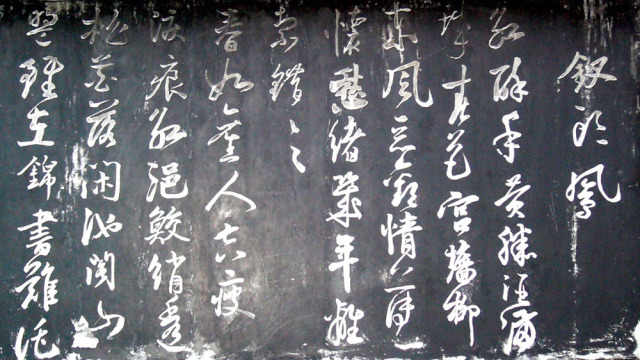 釵頭鳳
紅酥手黄縢酒滿
城春色宮墻柳
東風惡歡情薄一
懷愁緒幾年離
索錯々々
春如舊人空瘦
淚痕紅浥鮫綃透
桃花落閒池閣山
盟雖在錦書難託